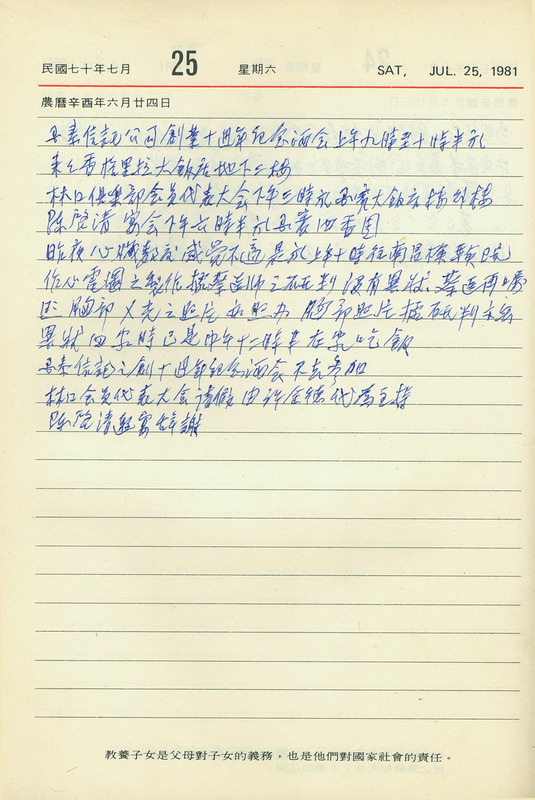 民國七十年七月 25 星期六 SAT, JUL. 25, 1981
農曆辛酉年六月廿四日
信託公司創業十週年紀念酒会上午九時至十時半於
來々香格里拉大飯店地下二樓
林口俱樂部会員代表大会下午三時於國賓大飯店樓
陳啓清宴会下午六時半於
昨夜心臟 感覚不適 於上午十時往 檢驗院
作心電圖之製作 據蔡造師之 判沒有異狀、蔡造再囑
照胸部X光之照片 如照办 胸部照片據 判亦無
異狀 回家時已是中午十二時半在家吃飯
信託之創十週年紀念酒会不去參加
林口会員代表大会請假由許金德代為主持
陳啓清 宴辞謝
教養子女是父母對子女的義務，也是他們對國家社會的責任。